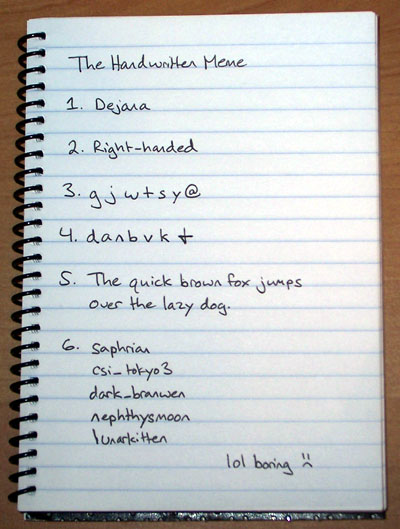 The Handwritten Meme
1. Dejana
2. Right-handed
3. g j w t s y @
4. d a n b v k t
5. The quick brown fox jumps
over the lazy dog.
6. saphrian
csi_tokyo3
dark_branwen
nephthysmoon
lunarkitten
lol boring :(